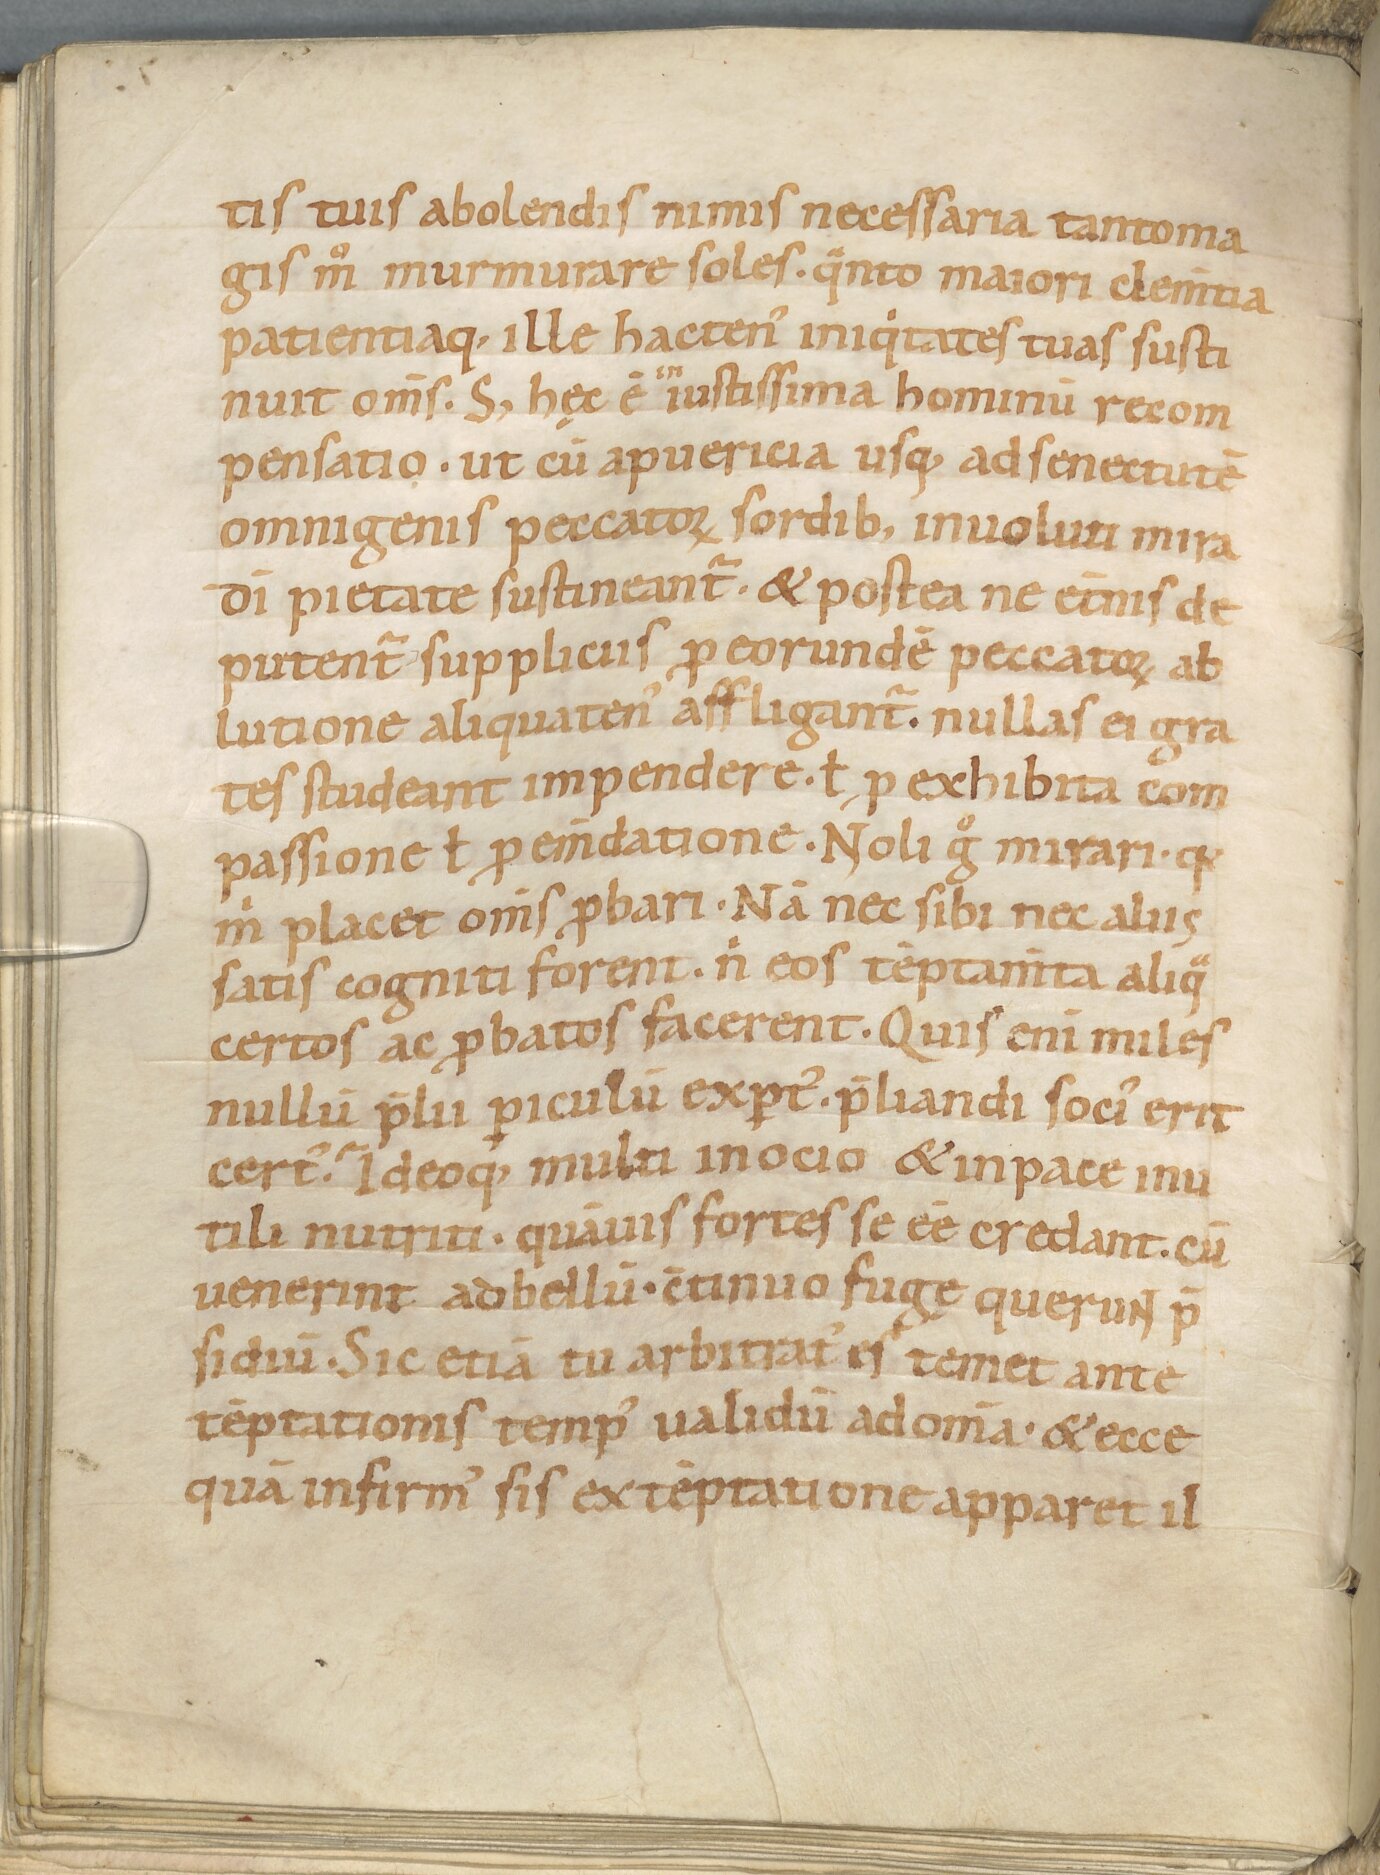 tis tuis abolendis nimis necessaria tantoma
gis m̊ murmurare soles. qᷓnto maiori clem̄tia
patientiaq; ille hacten᾽ iniqͥtates tuas susti
nuit om̄s. S; hęc ē ͥⁿiustissima hominū recom
pensatio. ut cū apuericia usq; adsenectutē
omnigenis peccatoꝝ sordib; inuoluti mira
dī pietate sustineantᷓ. & postea ne et̄nis de
putentᷓ suppliciis ꝓ eorundē peccatoꝝ ab
lutione aliquaten᾽ affligantᷓ. nullas ei gra
tes studeant impendere. ł ꝓ exhibita com
passione ł ꝓ em̄datione. Noli g̊ mirari. qꝫ
mͥ placet om̄s ꝓbari. Nā nec sibi nec aliis
satis cogniti forent. nͥ eos tēptam̄ta aliqᷓ
certos ac ꝓbatos facerent. Quis eni miles
nullū p̄lii ꝑiculū exꝑt᾽. p̄liandi soci᾽ erit
cert᾽. Ideoq; multi inocio & inpace inu
tili nutriti. quāuis fortes se eē credant. cū
uenerint adbellū. c̄tinuo fugę querunt p̄
sidiū. Sic etiā tu arbitrat᾽ es temet ante
tēptationis temp᾽ ualidū adom̄a. & ecce
quā infirm᾽ sis ex tēptatione apparet il